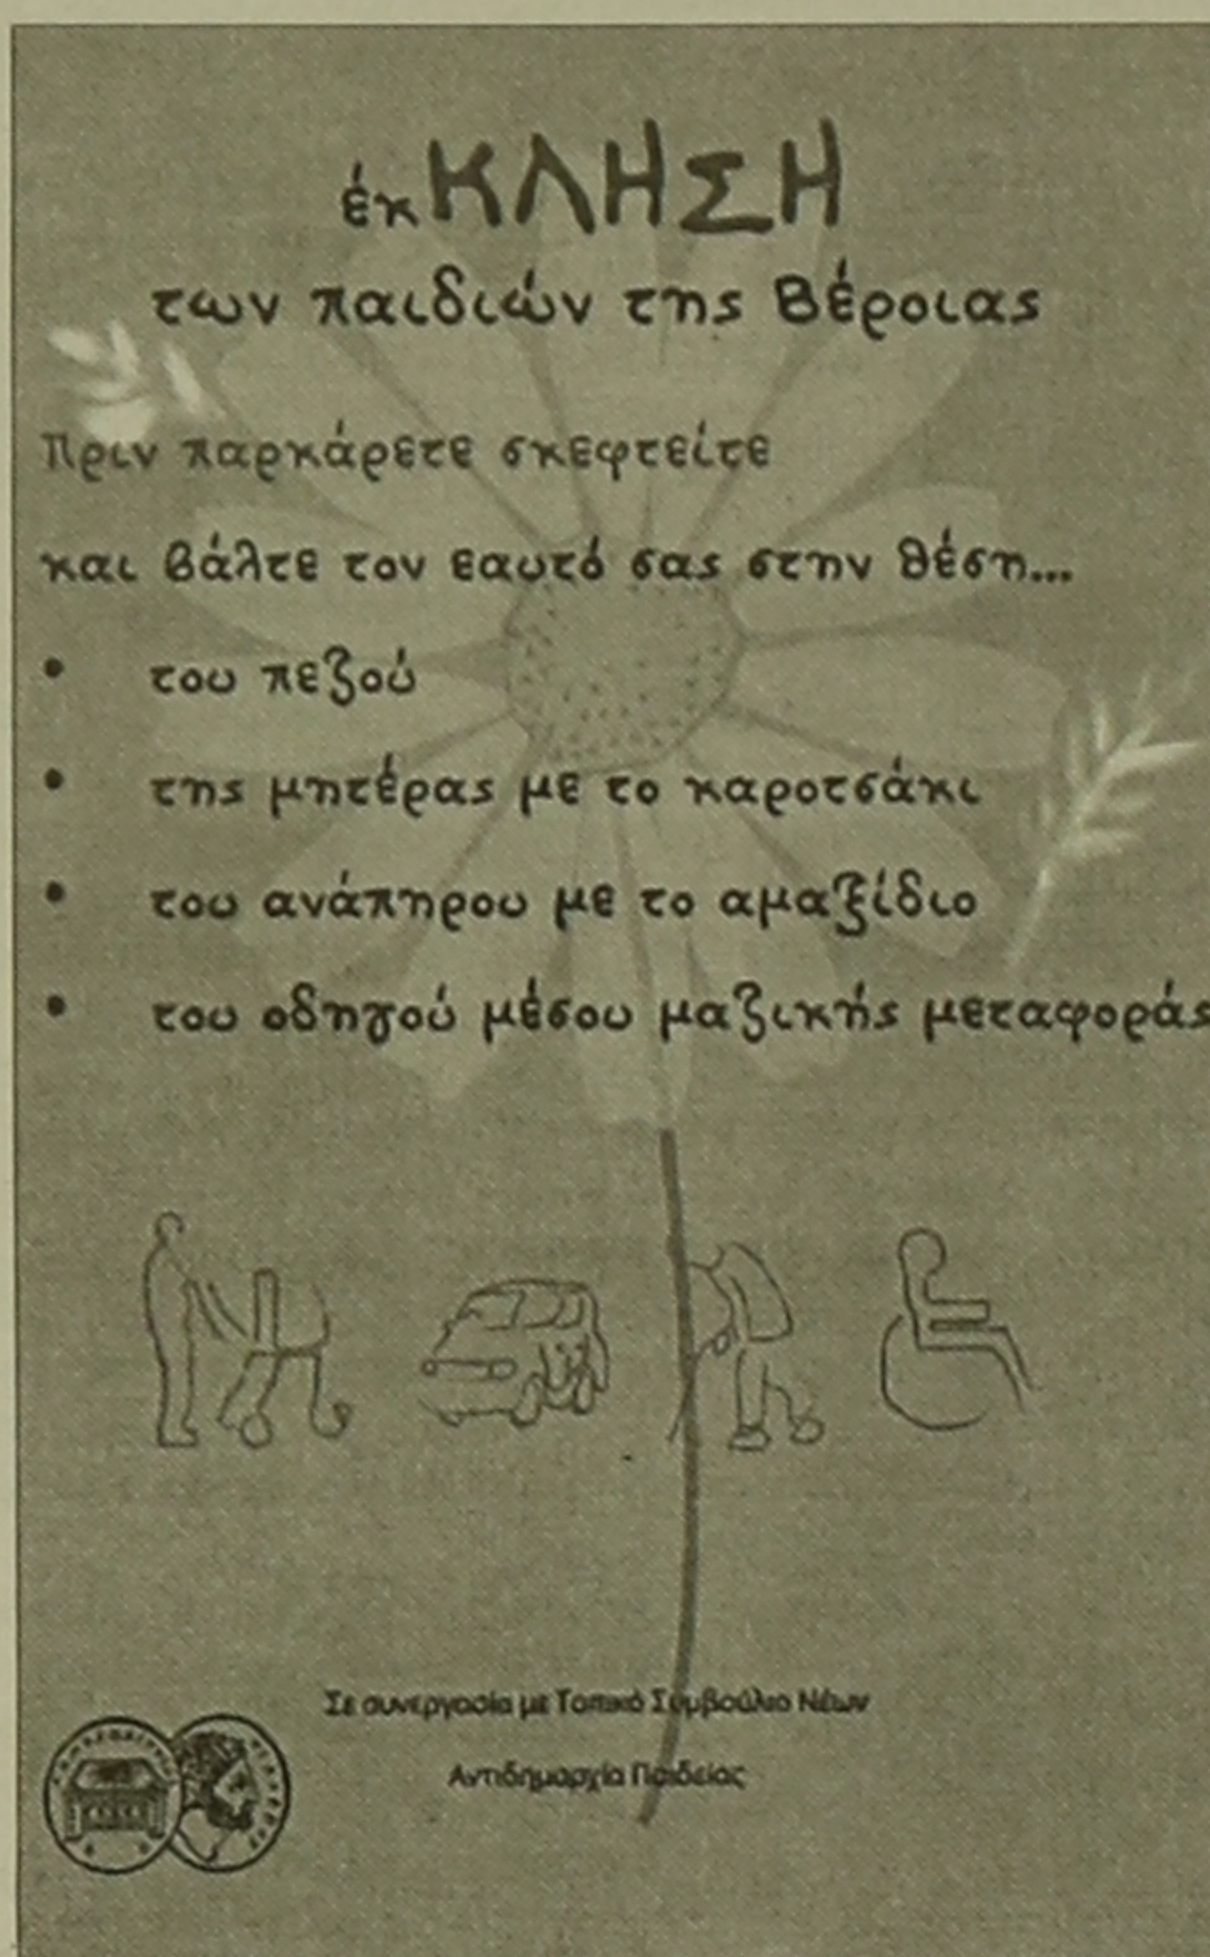 έκΚΛΗΣΗ
των παιδιών της Βέροιας
Πριν παρκάρετε σκεφτείτε
και βάλτε τον εαυτό σας στην θέση...
• του πεζού
• της μητέρας με το καροτσάκι
• του ανάπηρου με το αμαξίδιο
• του οδηγού μέσου μαζικής μεταφοράς
Σε συνεργασία με Τοπικό Συμβούλιο Νέων
Αντιδημαρχία Παιδείας